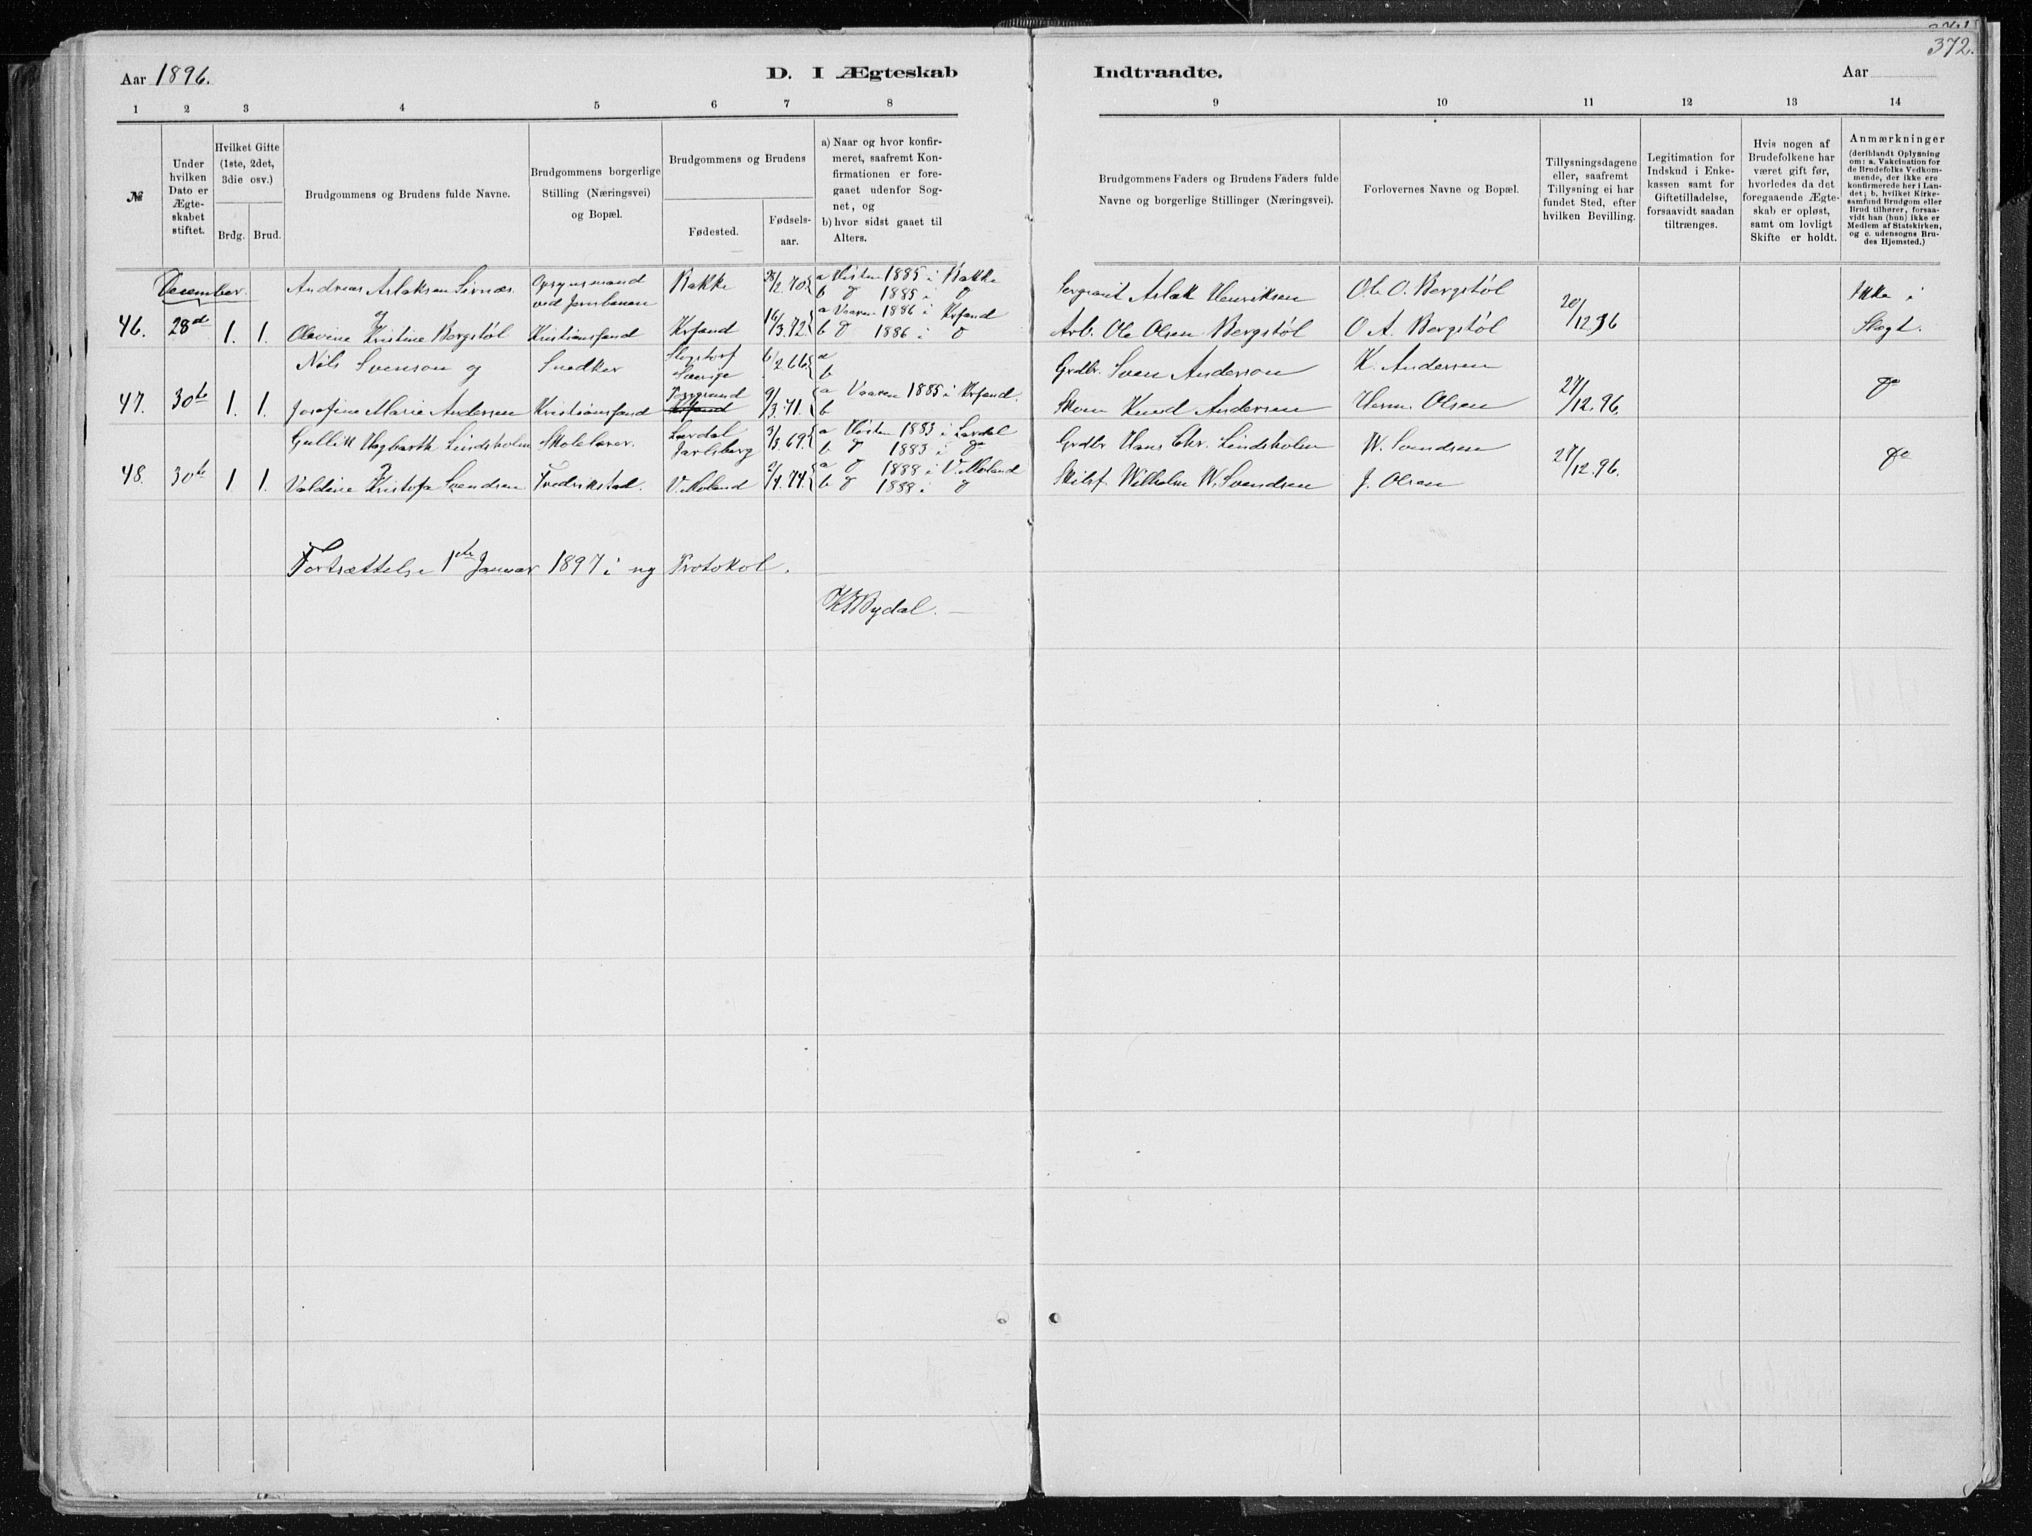 372.
Aar 1896.
D. I Ægteskab Indtraadte.
Aar
1 2 3 4 5 6 7 8 9 10 11 12 13 14
№
Under hvilken Dato er Ægteskabet stiftet.
Hvilket Gifte (1ste, 2det, 3die osv.)
Brdg. Brud.
Brudgommens og Brudens fulde Navne.
Brudgommens borgerlige Stilling (Næringsvei) og Bopæl.
Brudgommens og Brudens
Fødested.
Fødselsaar.
a) Naar og hvor konfirmeret, saafremt Konfirmationen er foregaaet udenfor Sognet, og
b) hvor sidst gaaet til Alters.
Brudgommens Faders og Brudens Faders fulde Navne og borgerlige Stillinger (Næringsvei).
Forlovernes Navne og Bopæl.
Tillysningsdagene eller, saafremt Tillysning ei har fundet Sted, efter hvilken Bevilling.
Legitimation for Indskud i Enkekassen samt for Giftetilladelse, forsaavidt saadan tiltrænges.
Hvis nogen af Brudefolkene har været gift før, hvorledes da det foregaaende Ægteskab er opløst, samt om lovligt Skifte er holdt.
Anmærkninger
(deriblandt Oplysning om: a. Vakcination for de Brudefolks Vedkommende, der ikke ere konfirmerede her i Landet; b. hvilket Kirkesamfund Brudgom eller Brud tilhører, forsaavidt han (hun) ikke er Medlem af Statskirken, og c. udensogns Brudes Hjemsted.)
December.
Andreas Aslaksen Sirnæs Opsynsmand ved Jernbanen Bakke 2.70 a Høsten 1885 i Bakke b do 1885 i do Sergeant Aslak Henriksen Ole O. Bergstøl Ikke i
46. 28de 1. 1. og Olevine Kristine Bergstøl Kristianssand Krsand 16/3.72 a Vaaren 1886 i Krsand b do 1886 i do Arb. Ole Olsen Bergstøl O A. Bergstøl 20/12.96 Slægt.
Nils Svenson og Snedker Sverige 6/2 66 a b Grdbr. Sven Anderson K. Andersen
47. 30te 1. 1. Josefine Marie Andersen Kristianssand Porsgrund 9/3.71. a Vaaren 1885 i Krsand. b Skom Knud Andersen Herm. Olsen 27/12.96. do
Gullik Hagbarth Lindsholm Skolelærer. Lardal Jarlsberg 3/3 69 a Høsten 1883 i Lardal b do 1883 i do Grdbr Hans Chr. Lindsholm W. Svendsen
48. 30te 1 1. og Valdine Kristofa Svendsen Fredrikstad. V. Moland 2/4.74. a do 1888 i V. Moland b do 1888 i do Skibsf. Wilhelm W. Svendsen J. Olsen 27/12.96. do
Fortsættelse 1ste Januar 1897 i ny Protokol.